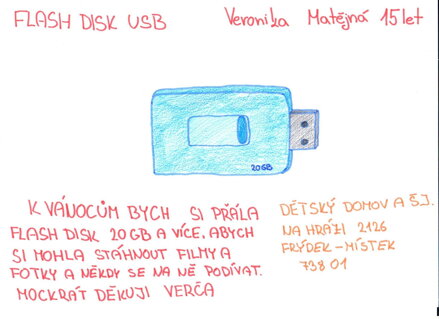 FLASH DISK USB
Veronika Matějná 15 let
20GB
K VÁNOCŮM BYCH SI PŘÁLA
FLASH DISK 20 GB A VÍCE. ABYCH
SI MOHLA STÁHNOUT FILMY A
FOTKY A NĚKDY SE NA NĚ PODÍVAT.
MOCKRÁT DĚKUJI VERČA
DĚTSKÝ DOMOV A ŠJ.
NA HRÁZI 2126
FRÝDEK-MÍSTEK
738 01